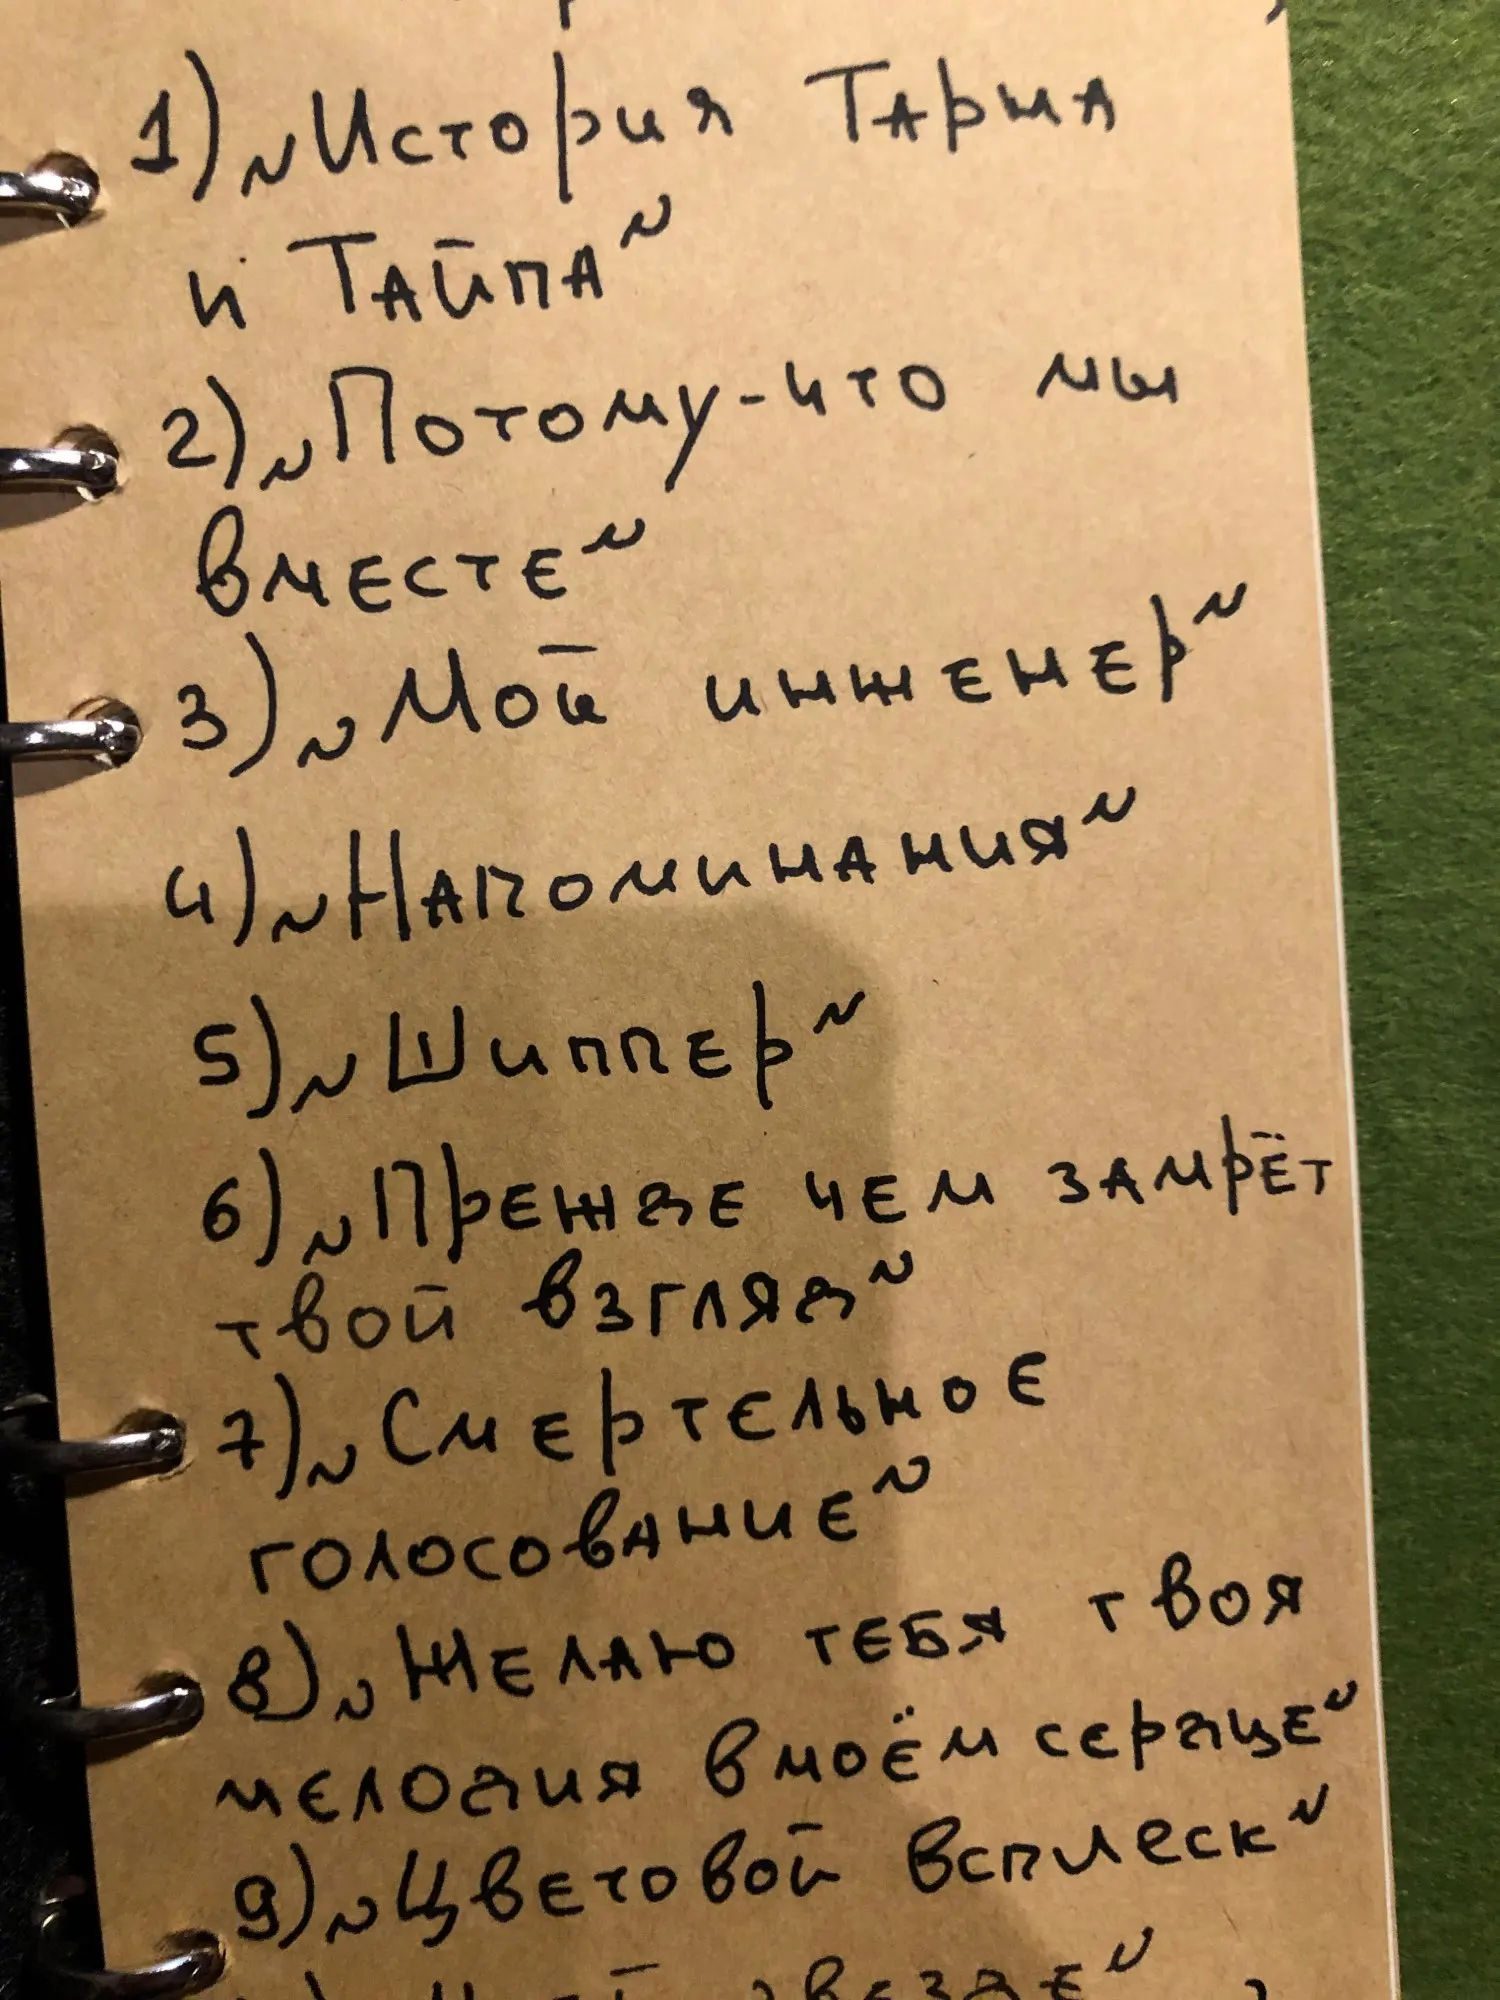 1) „История Тарна
и Тайпа"
2) „Потому-что мы
вместе"
3) „Мой инженер"
4) „Напоминания"
5) „Шиппер"
6) „Прежде чем замрёт
твой взгляд"
7) „Смертельное
голосование"
8) „Желаю тебя твоя
мелодия в моём сердце"
9) „Цветовой всплеск"
звезде"